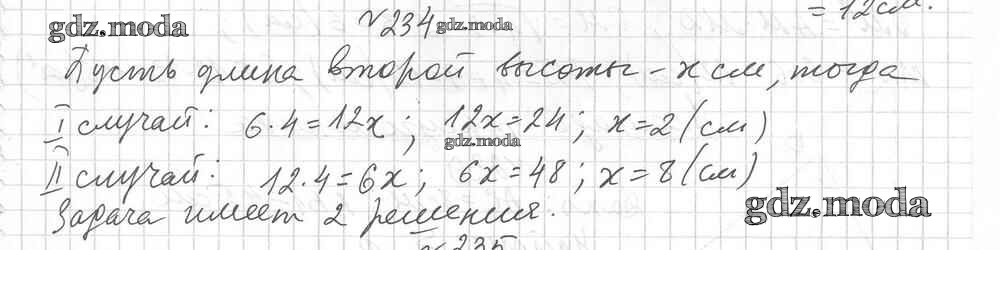 = 12 см.
gdz.moda
№234 gdz.moda
Пусть длина второй высоты - x см, тогда
I случай: 6·4=12x; 12x=24; x=2 (см)
gdz.moda
II случай: 12·4=6x; 6x=48; x=8 (см)
Задача имеет 2 решения.
gdz.moda
№235